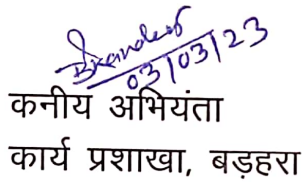 03/03/23
कनीय अभियंता
कार्य प्रशाखा, बड़हरा